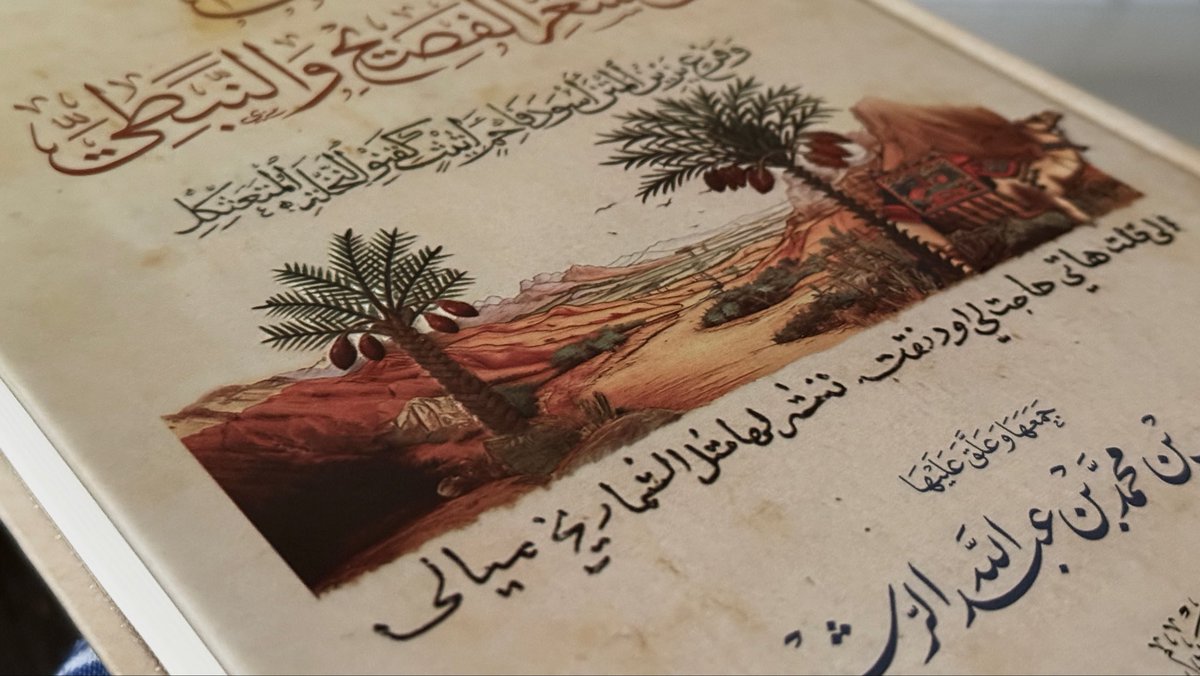 الشعر الفصيح والنبطي
وَفَرْعٍ يَزِينُ المَتْنَ أَسْوَدَ فَاحِمٍ أَثِيثٍ كَقِنْوِ النَّخْلَةِ المُتَعَثْكِلِ
الى قلت هاتي حاجتي لي اودنقت نثر لها مثل الشماريخ ميالي
جَمَعَهَا وَعَلَّقَ عَلَيْهَا
بْن محمّد بْن عبد الله